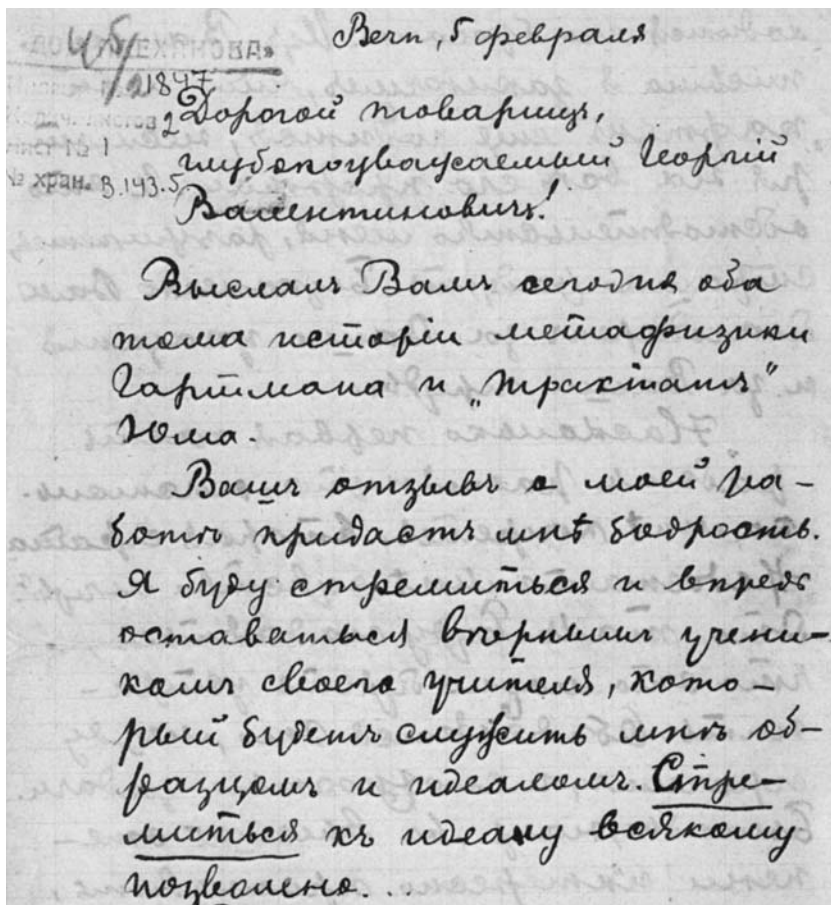 Берн, 5 февраля
«ДОМ ПЛЕХАНОВА»
1847
2
Лист № 1
№ хран. В.143.5
Дорогой товарищъ,
глубокоуважаемый Георгій
Валентиновичъ!
Выслалъ Вамъ сегодня оба
тома исторіи метафизики
Гартмана и „трактатъ“
Юма.
Вашъ отзывъ о моей ра-
ботѣ придастъ мнѣ бодрость.
Я буду стремиться и впредь
оставаться вѣрнымъ учени-
комъ своего учителя, кото-
рый будетъ служить мнѣ об-
разцомъ и идеаломъ. Стре-
миться къ идеалу всякому
позволено...